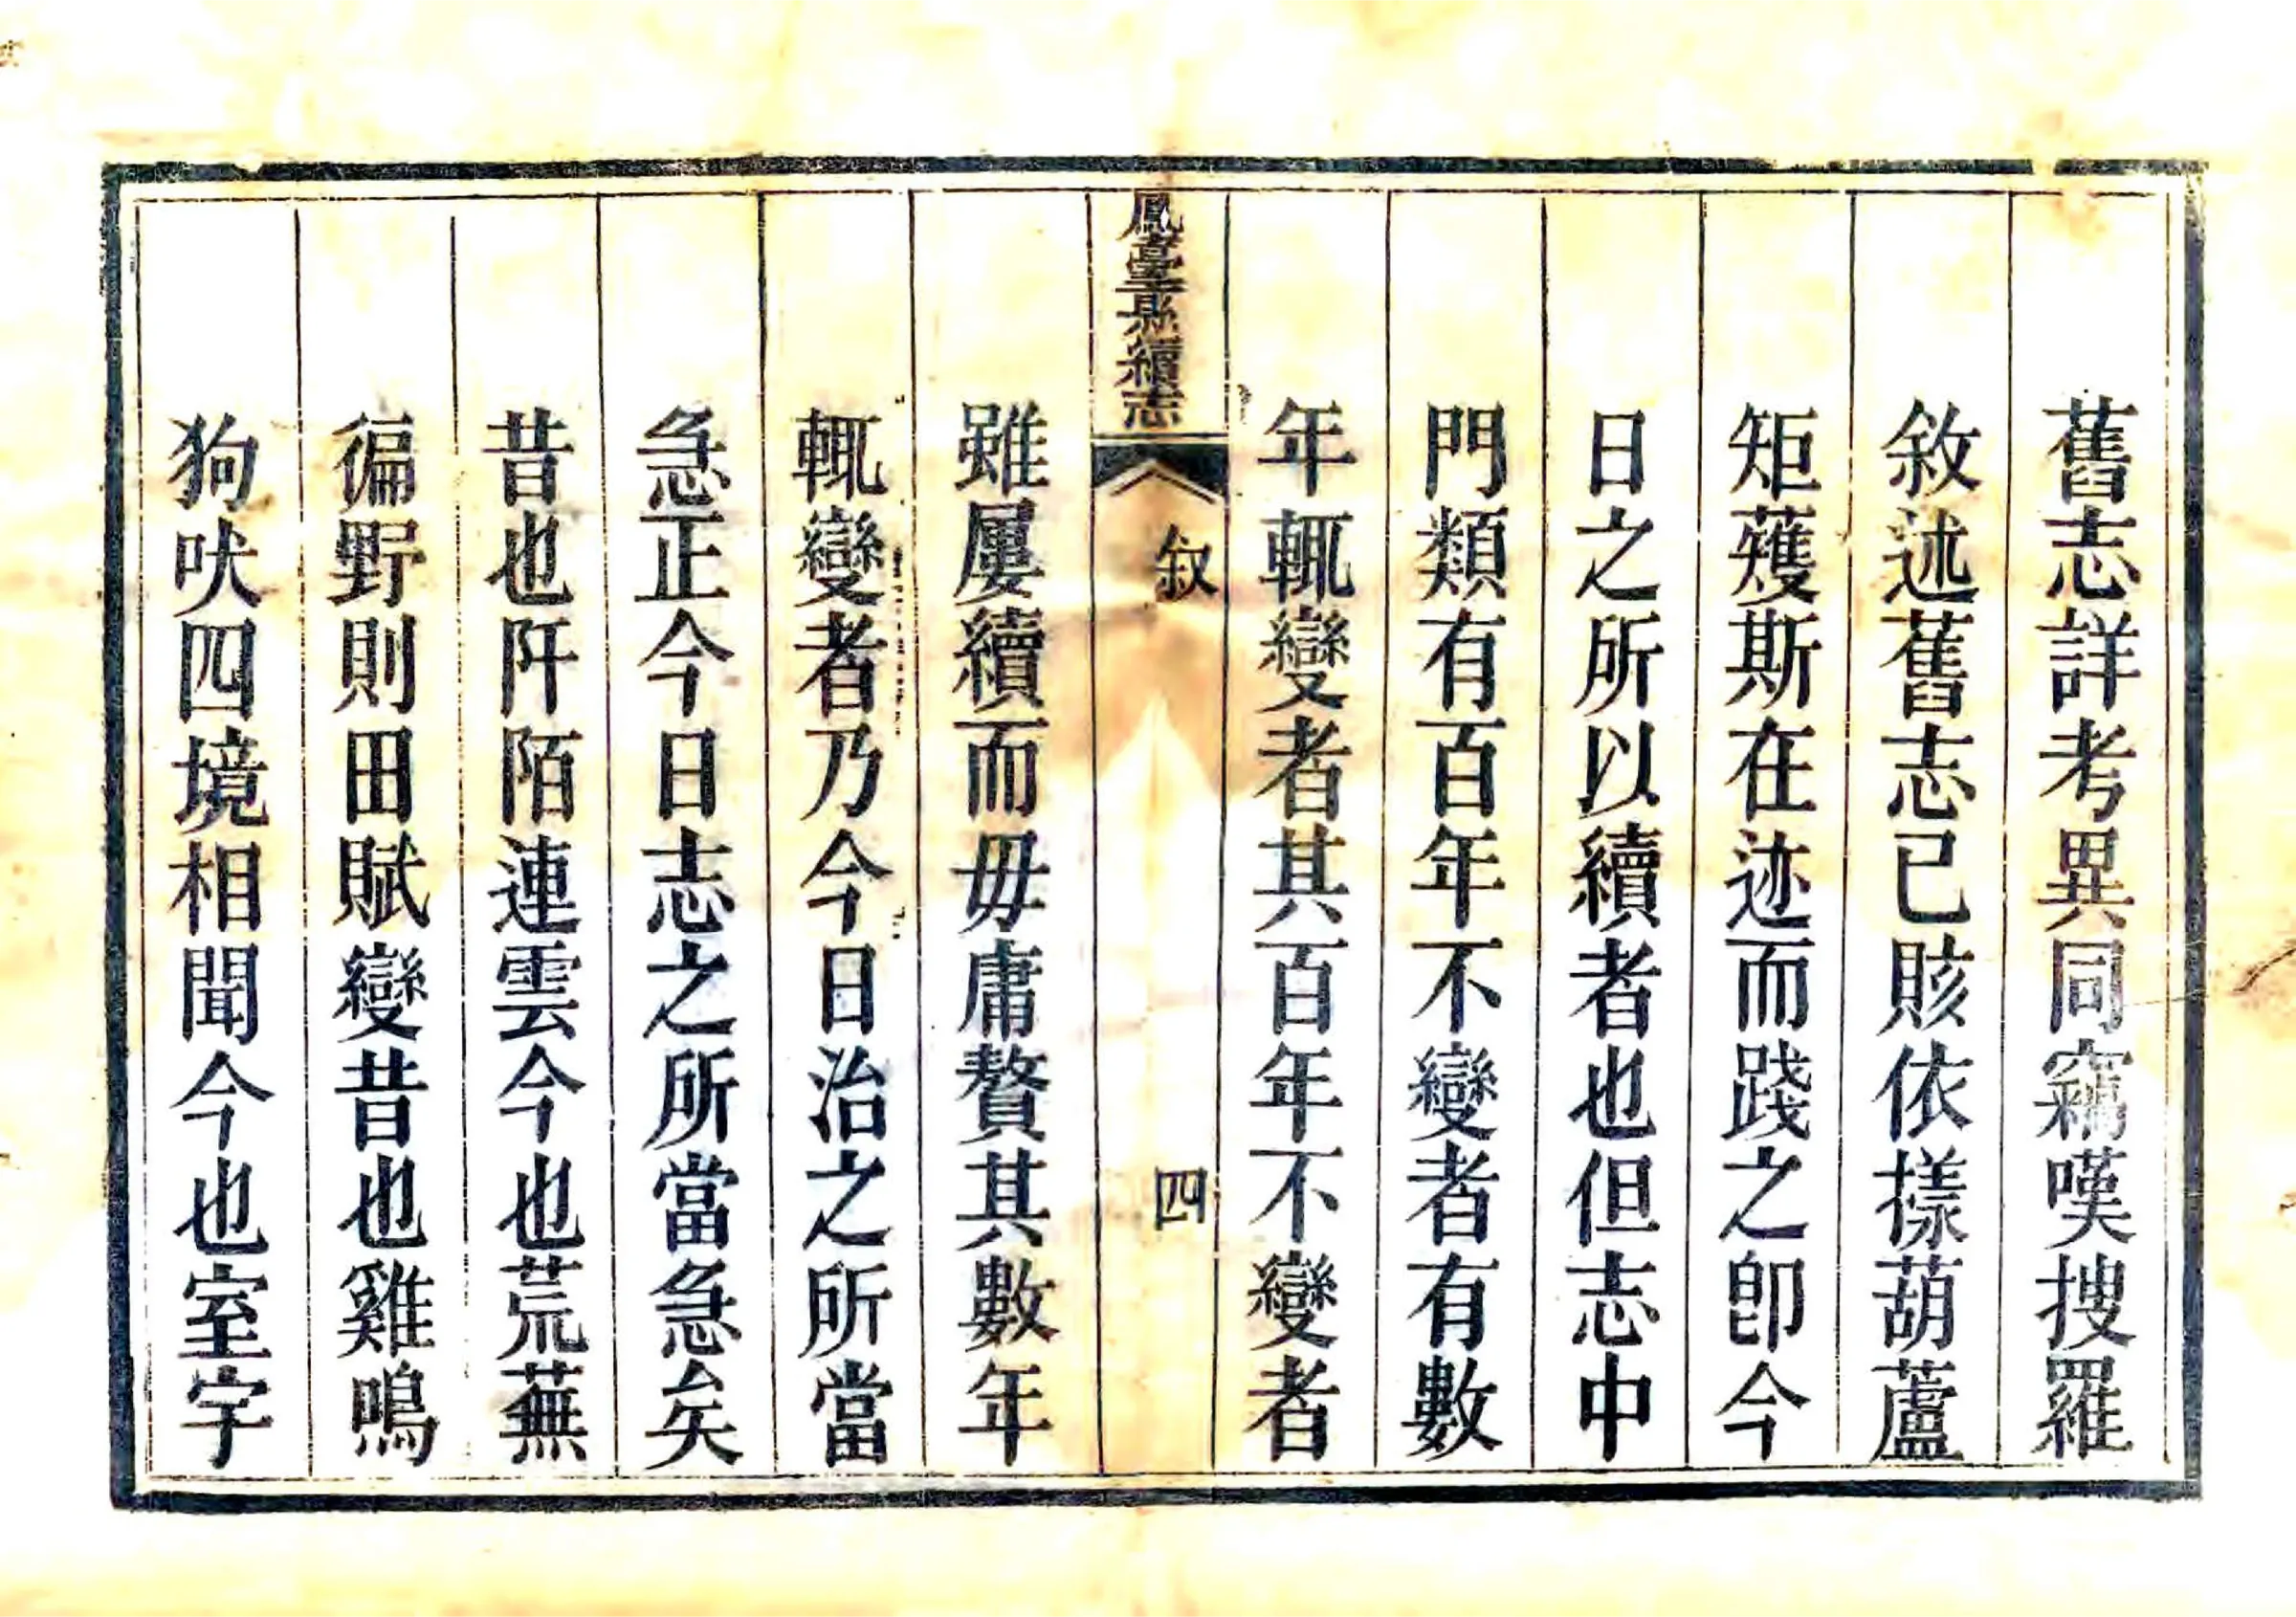 舊志詳考異同竊嘆搜羅
敘述舊志已賅依㨾葫蘆
矩矱斯在迹而踐之卽今
日之所以續者也但志中
門類有百年不變者有數
年輒變者其百年不變者
鳳臺縣續志
敘
四
雖屢續而毋庸贅其數年
輒變者乃今日治之所當
急正今日志之所當急矣
昔也阡陌連雲今也荒蕪
徧野則田賦變昔也雞鳴
狗吠四境相聞今也室宇